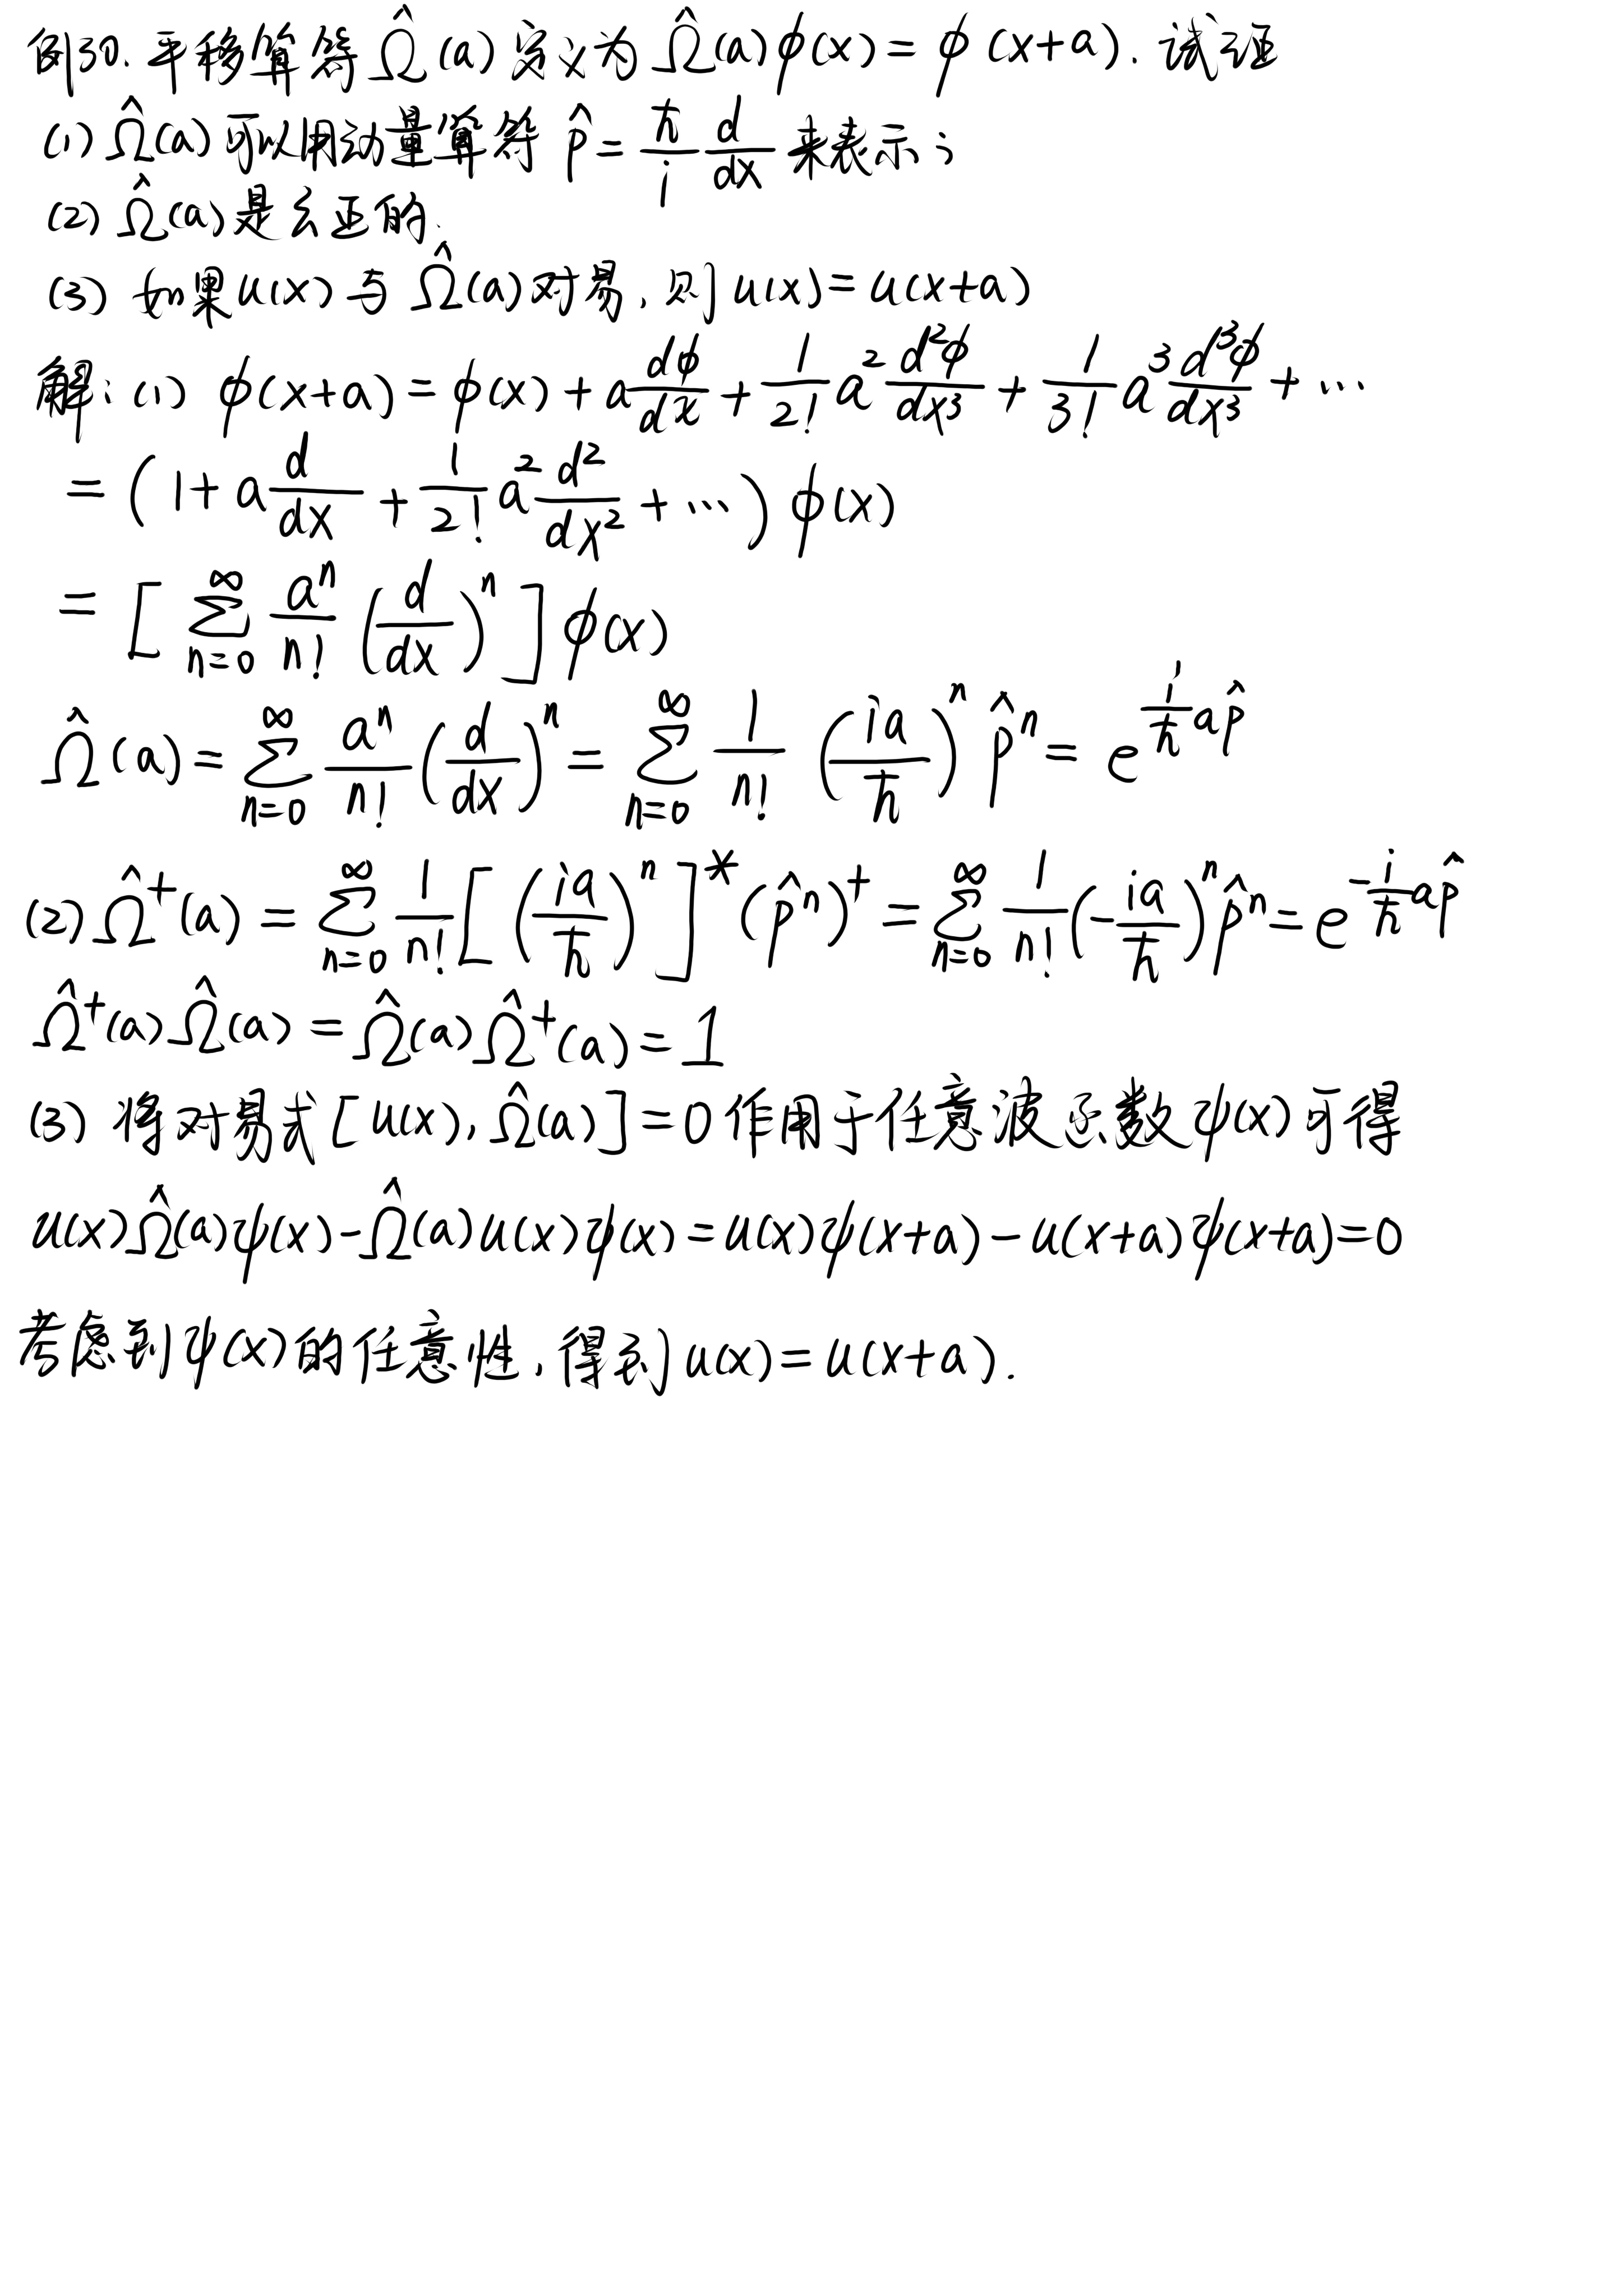 例30. 平移算符 Ω̂(a) 定义为 Ω̂(a)ϕ(x) = ϕ(x+a). 试证
(1) Ω̂(a) 可以用动量算符 p̂ = \frac{ħ}{i}\frac{d}{dx} 来表示;
(2) Ω̂(a) 是幺正的.
(3) 如果 u(x) 与 Ω̂(a) 对易, 则 u(x) = u(x+a)
解: (1) ϕ(x+a) = ϕ(x) + a\frac{dϕ}{dx} + \frac{1}{2!}a^2\frac{d^2ϕ}{dx^3} + \frac{1}{3!}a^3\frac{d^3ϕ}{dx^3} + ⋯
= (1 + a\frac{d}{dx} + \frac{1}{2!}a^2\frac{d^2}{dx^2} + ⋯)ϕ(x)
= [\sum_{n=0}^{∞}\frac{a^n}{n!}(\frac{d}{dx})^n]ϕ(x)
Ω̂(a) = \sum_{n=0}^{∞}\frac{a^n}{n!}(\frac{d}{dx})^n = \sum_{n=0}^{∞}\frac{1}{n!}(\frac{ia}{ħ})^n p̂^n = e^{\frac{i}{ħ}ap̂}
(2) Ω̂^+(a) = \sum_{n=0}^{∞}\frac{1}{n!}[(\frac{ia}{ħ})^n]^*(p̂^n)^+ = \sum_{n=0}^{∞}\frac{1}{n!}(-\frac{ia}{ħ})^n p̂^n = e^{-\frac{i}{ħ}ap̂}
Ω̂^+(a)Ω̂(a) = Ω̂(a)Ω̂^+(a) = 1
(3) 将对易式 [u(x), Ω̂(a)] = 0 作用于任意波函数 ψ(x) 可得
u(x)Ω̂(a)ψ(x) - Ω̂(a)u(x)ψ(x) = u(x)ψ(x+a) - u(x+a)ψ(x+a) = 0
考虑到 ψ(x) 的任意性, 得到 u(x) = u(x+a).